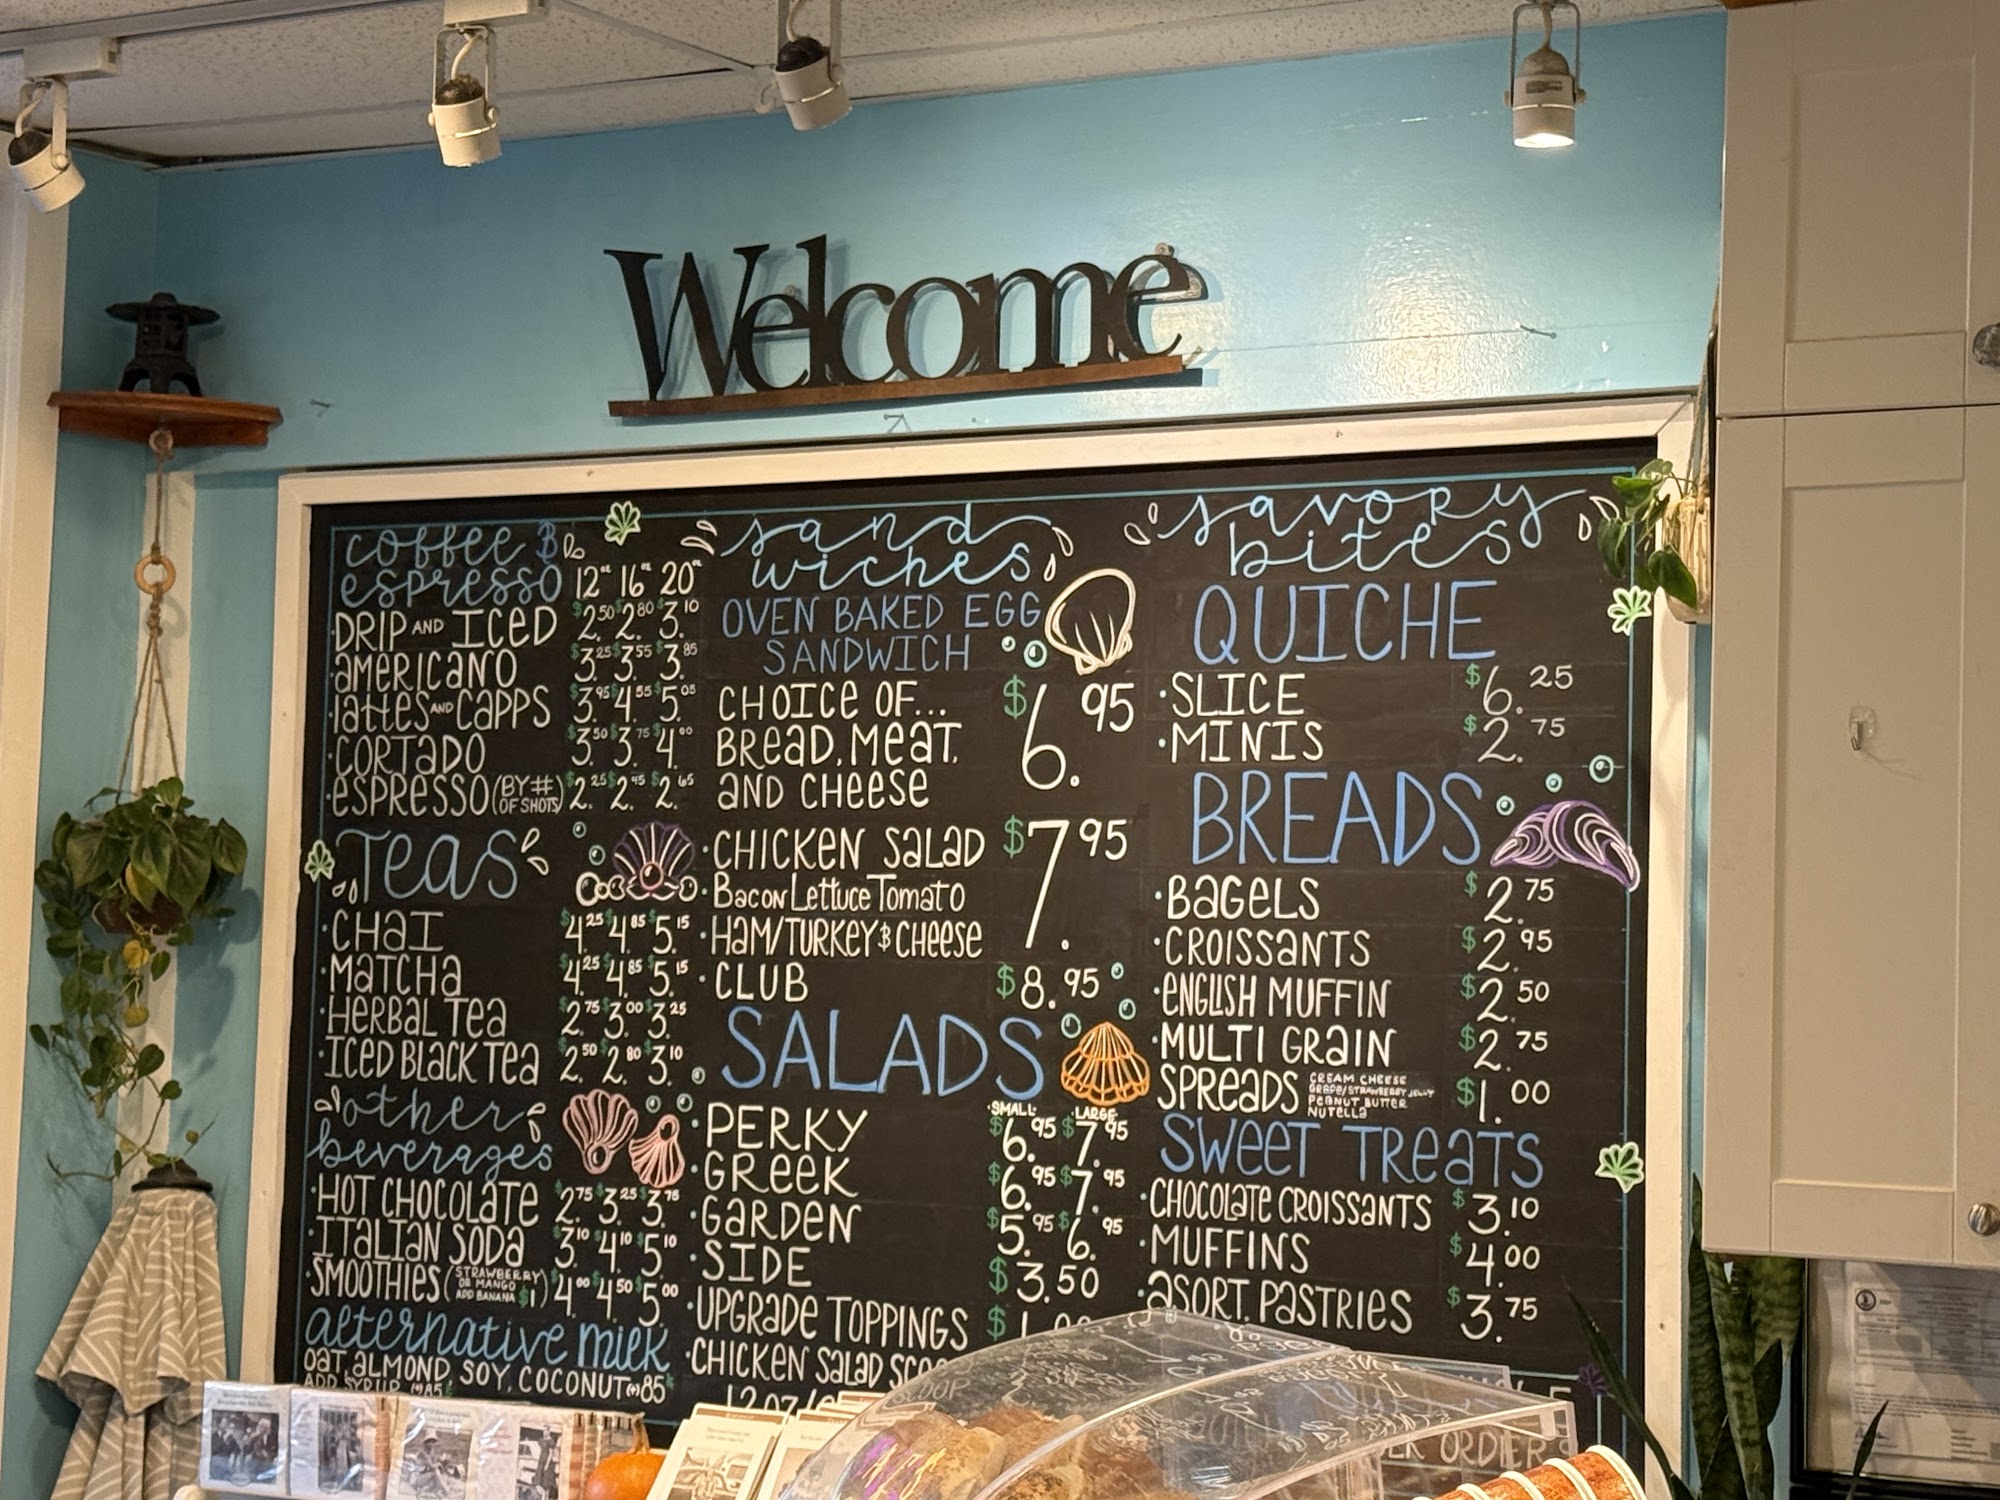 Welcome
coffee &
espresso 12oz 16oz 20oz
DRIP AND ICED $2.50 $2.80 $3.10
AMERICANO $3.25 $3.55 $3.85
lattes AND CAPPS $3.95 $4.55 $5.05
CORTADO $3.50 $3.75 $4.00
ESPRESSO (BY # OF SHOTS) $2.25 $2.45 $2.65
TEAS
CHAI $4.25 $4.85 $5.15
MATCHA $4.25 $4.85 $5.15
HERBAL TEA $2.75 $3.00 $3.25
ICED BLACK TEA $2.50 $2.80 $3.10
other
beverages
HOT CHOCOLATE $2.75 $3.25 $3.75
ITALIAN SODA $3.10 $4.10 $5.10
SMOOTHIES (STRAWBERRY OR MANGO ADD BANANA $1) $4.00 $4.50 $5.00
alternative milk
OAT, ALMOND, SOY, COCONUT (+) 85
ADD SYRUP (+) 85
sand
wiches
OVEN BAKED EGG
SANDWICH
CHOICE OF... $6.95
BREAD, MEAT,
AND CHEESE
CHICKEN SALAD $7.95
Bacon Lettuce Tomato
HAM/TURKEY & CHEESE
CLUB $8.95
SALADS
SMALL LARGE
PERKY $6.95 $7.95
GREEK $6.95 $7.95
GARDEN $5.95 $6.95
SIDE $3.50
UPGRADE TOPPINGS $1.00
CHICKEN SALAD
savory
bites
QUICHE
SLICE $6.25
MINIS $2.75
BREADS
BAGELS $2.75
CROISSANTS $2.95
ENGLISH MUFFIN $2.50
MULTI GRAIN $2.75
SPREADS CREAM CHEESE $1.00
GRAPE/STRAWBERRY JELLY
PEANUT BUTTER
NUTELLA
SWEET TREATS
CHOCOLATE CROISSANTS $3.10
MUFFINS $4.00
ASORT. PASTRIES $3.75
ORDER